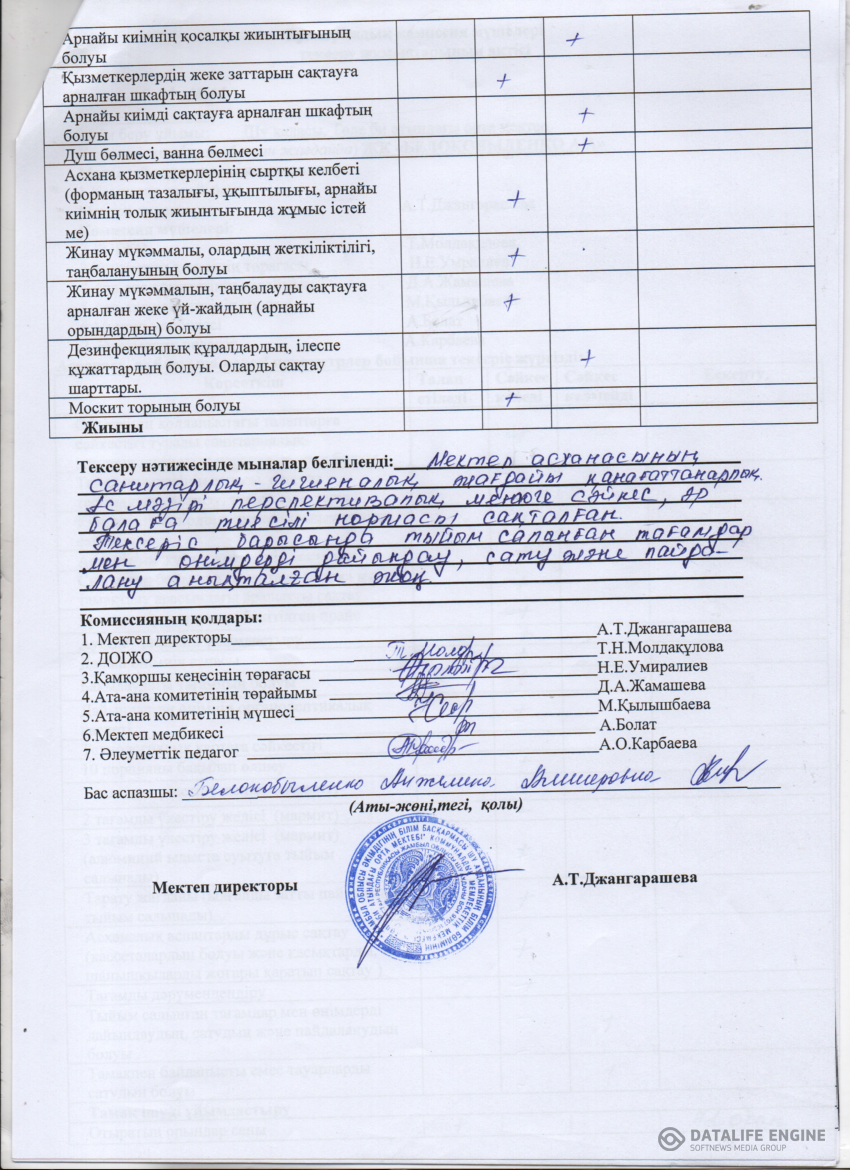 Арнайы киімнің қосалқы жиынтығының
болуы
+
Қызметкерлердің жеке заттарын сақтауға
арналған шкафтың болуы
+
Арнайы киімді сақтауға арналған шкафтың
болуы
+
Душ бөлмесі, ванна бөлмесі
+
Асхана қызметкерлерінің сыртқы келбеті
(форманың тазалығы, ұқыптылығы, арнайы
киімнің толық жиынтығында жұмыс істей
ме)
+
Жинау мүкәммалы, олардың жеткіліктілігі,
таңбалануының болуы
+
Жинау мүкәммалын, таңбалауды сақтауға
арналған жеке үй-жайдың (арнайы
орындардың) болуы
+
Дезинфекциялық құралдардың, ілеспе
құжаттардың болуы. Оларды сақтау
шарттары.
+
Москит торының болуы
+
Жиыны
Тексеру нәтижесінде мыналар белгіленді: Мектеп асханасының
санитарлық - гигиеналық жағдайы қанағаттанарлық.
Ас мәзірі перспективалық менюге сәйкес, әр
балаға тиесілі нормасы сақталған.
Тексеріс барысында тыйым салынған тағамдар
мен өнімдерді дайындау, сату және пайда-
лану анықталған жоқ.
Комиссияның қолдары:
1. Мектеп директоры А.Т.Джангарашева
2. ДОІЖО Т.Н.Молдақұлова
3.Қамқоршы кеңесінің төрағасы Н.Е.Умиралиев
4.Ата-ана комитетінің төрайымы Д.А.Жамашева
5.Ата-ана комитетінің мүшесі М.Қылышбаева
6.Мектеп медбикесі А.Болат
7. Әлеуметтік педагог А.О.Карбаева
Бас аспазшы: Белокобыленко Анжелика
(Аты-жөні,тегі, қолы)
Мектеп директоры А.Т.Джангарашева
DATALIFE ENGINE
SOFTNEWS MEDIA GROUP